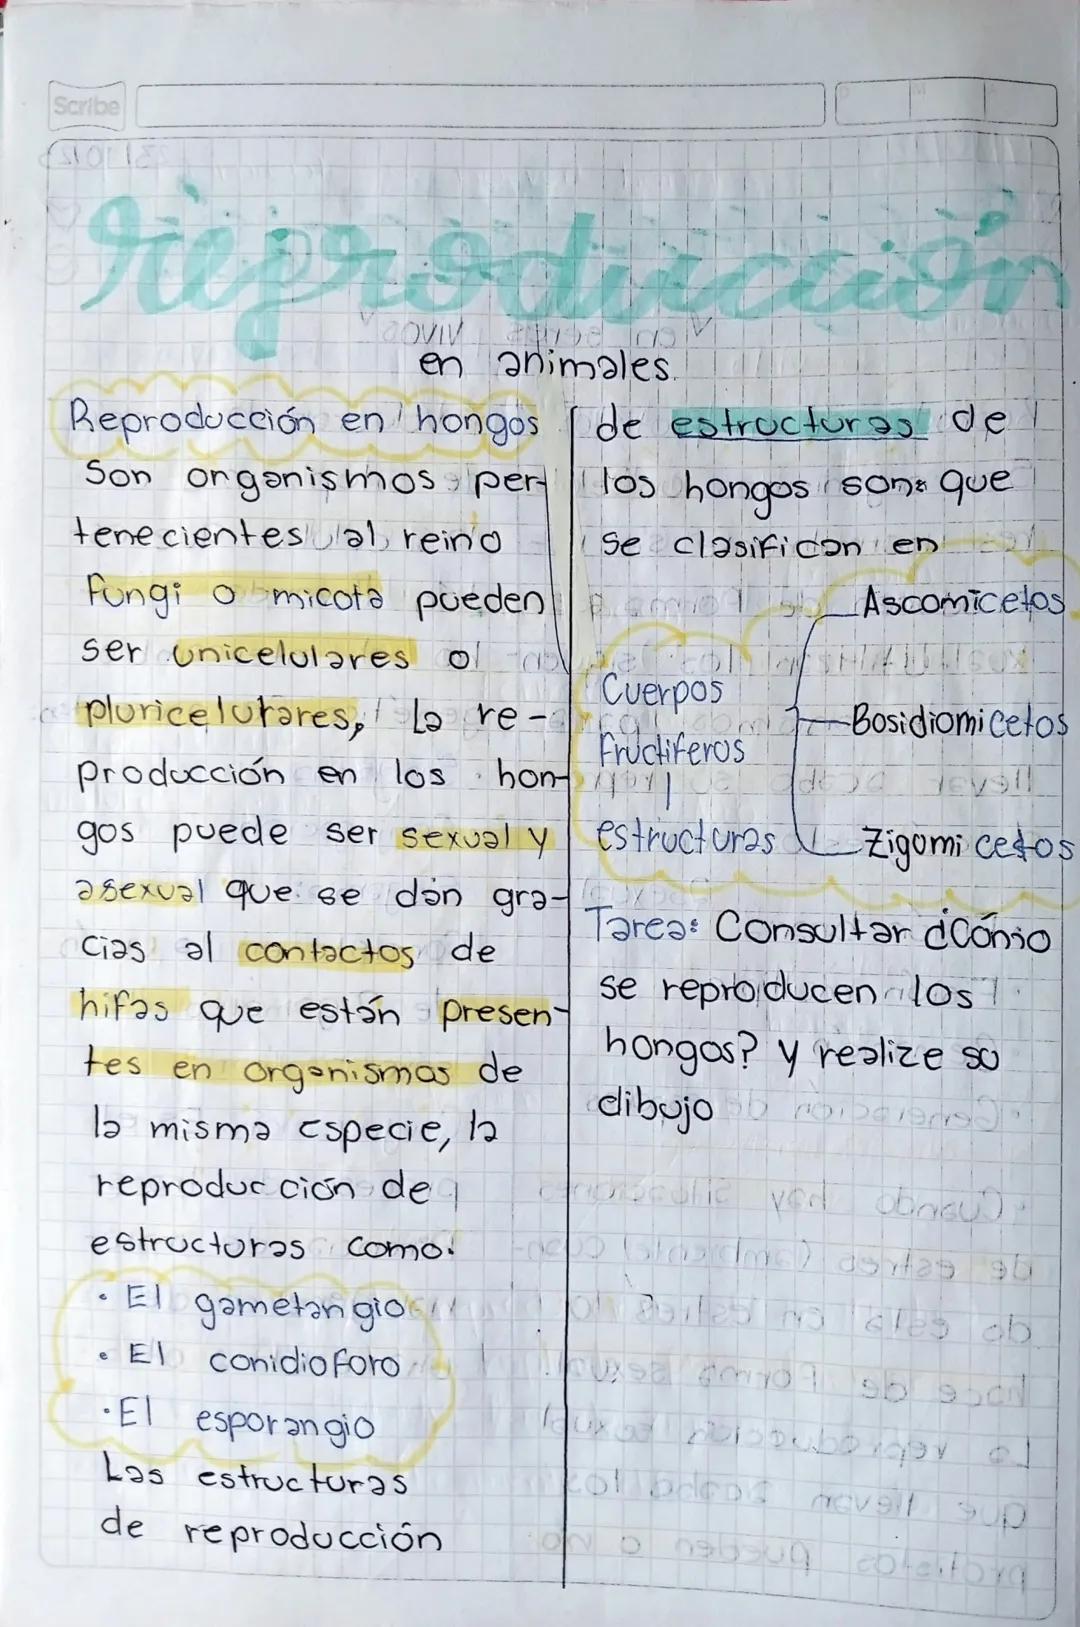 Scribe
reproducción
en animales.
Reproducción en hongos
Son organismos per-
tenecientes al reino
fungi o micota pueden
ser unicelulares o
pluricelulares, La re-
producción en los hon-
gos puede ser sexual y
asexual que se dan gra-
cias al contactos de
hifas que están presen-
tes en organismos de
la misma especie, la
reproducción de
estructuras como:
· El gametangio
· El conidioforo
· El esporangio
Las estructuras
de reproducción
de estructuras de
los hongos son: que
se clasifican en
Ascomicetos
Cuerpos
fructiferos
Bosidiomicetos
estructuras
Zigomicetos
Tarea: Consultar ¿Cómo
se reproducen los
hongos? y realize su
dibujo